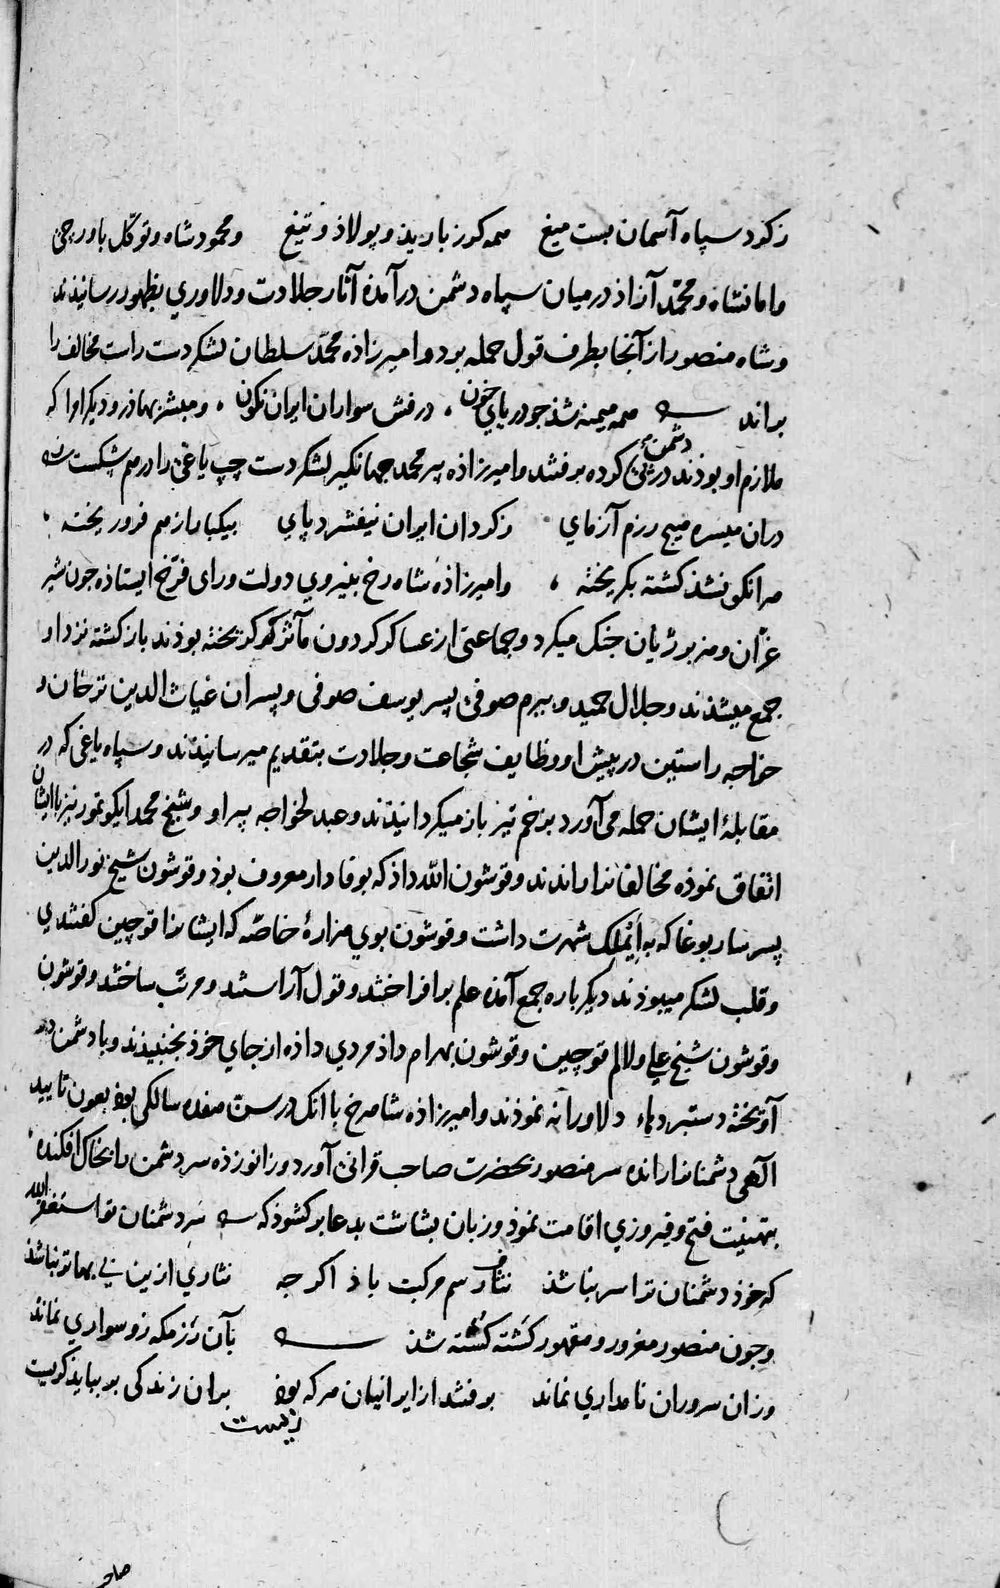 ز کرد سپاه آسمان بست میغ همه کرز بارید و پولاذ و تیغ و محمود شاه و توکّل باورجی
و امانشاه و محمّد آزاذ در میان سپاه دشمن درآمده آثار جلادت و دلاوری بظهور رسانیدند
و شاه منصور از آنجا بطرف قول حمله برد و امیرزاذه محمّد سلطان لشکر دست راست مخالف را
براند همه میمنه شذ جو دریای خون درفش سواران ایران نکون و مبشر بهاذر و دیکر امرا که
ملازم او بوذند دشمن کرده برفتند و امیرزاذه پیر محمد جهانکیر لشکر دست چپ یاغی را درهم شکست
دران میسره هیچ رزم آزمای ز کردان ایران نیفشرد پای بیکبار از هم فرو ریخته
هرانکو نشذ کشته بکریخته و امیرزاذه شاه رخ بنیروی دولت و رای فرّخ ایستاذه جون شیر
غرّان و هزبر ژیان جنک میکرد و جماعتی از عساکر کردون مآثر که کریخته بوذند باز کشته نزد او
جمع میشدند و جلال حمید و بیرم صوفی پسر یوسف صوفی و پسران غیاث الدین ترخان و
خواجه راستین در پیش او وظایف شجاعت و جلادت بتقدیم میرسانیدند و سپاه یاغی که در
مقابلهٔ ایشان حمله می آورد بزخم تیر باز میکردانیدند و عبد الخواجه پیر او و شیخ محمد ایکو تمور نیز با ایشان
اتفاق نموذه مخالفانرا راندند و قوشون الله داذ که بوفادار معروف بوذ و قوشون شیخ نور الدین
پسر ساربوغا که به ایتملک شهرت داشت و قوشون بوی هزارهٔ خاصّه که ایشانرا قوچین کفتندی
و قلب لشکر میبوذند دیکرباره جمع آمده علم برافراختند و قول آراستند و مرتّب ساختند و قوشون
و قوشون شیخ علی و لالم قوچین و قوشون بهرام داذ مردی داذه از جای خوذ نجنبیذند و با دشمن در
آویخته دستبردهاء دلاورانه نموذند و امیرزاذه شاهرخ با انک در سن هفده سالکی بوذ بعون تایید
آلهی دشمنانرا رانده سر منصور بحضرت صاحب قرانی آورد و زانو زذه سر دشمن را بخاک افکنده
بتهنیت فتح و فیروزی اقامت نموذ و زبان بشاشت بدعا برکشوذ که سر دشمنان تو استغفر الله
که خوذ دشمنان ترا سر نباشذ نثار سم مرکبت باذ اکرجه نثاری ازین بی بهاتر نباشذ
وجون منصور مغرور و مقهور کشته کشته شذ بآن رزمکه زو سواری نماند
وزان سروران نامداری نماند برفتند از ایرانیان هر که بوذ بران زندکی بر بباید کریست
زیست
صاحب